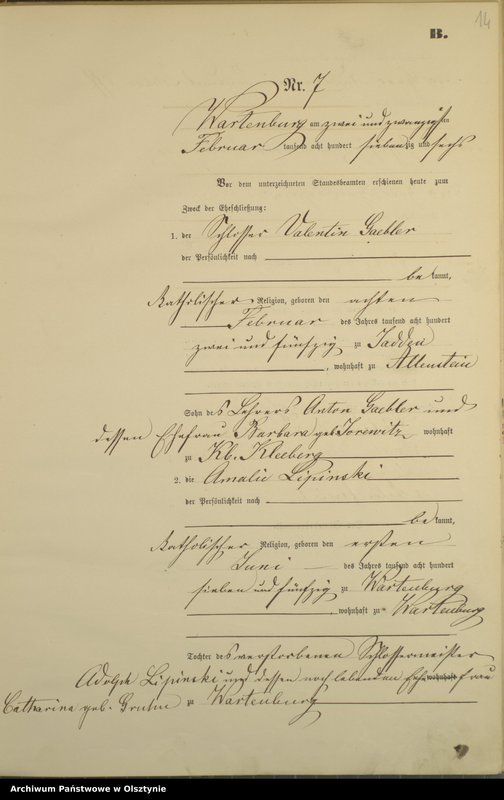 14
B.
Nr. 7
Wartenburg am zwei und zwanzigsten
Februar tausend acht hundert siebenzig und sechs
Vor dem unterzeichneten Standesbeamten erschienen heute zum
Zweck der Eheschließung:
1. der Schlosser Valentin Gaebler
der Persönlichkeit nach
be kannt,
katholischer Religion, geboren den achten
Februar des Jahres tausend acht hundert
zwei und fünfzig zu
, wohnhaft zu Allenstein
Sohn des Lehrers Anton Gaebler und
dessen Ehefrau Barbara geb. wohnhaft
zu Kl. Kleeberg
2. die Amalie Lipinski
der Persönlichkeit nach
be kannt,
katholischer Religion, geboren den ersten
Juni des Jahres tausend acht hundert
sieben und fünfzig zu Wartenburg
, wohnhaft zu Wartenburg
Tochter des verstorbenen Schlossermeister
Adolph Lipinski und dessen noch lebenden Ehe wohnhaft frau
Catharina geb. Grunn zu Wartenburg
Archiwum Państwowe w Olsztynie